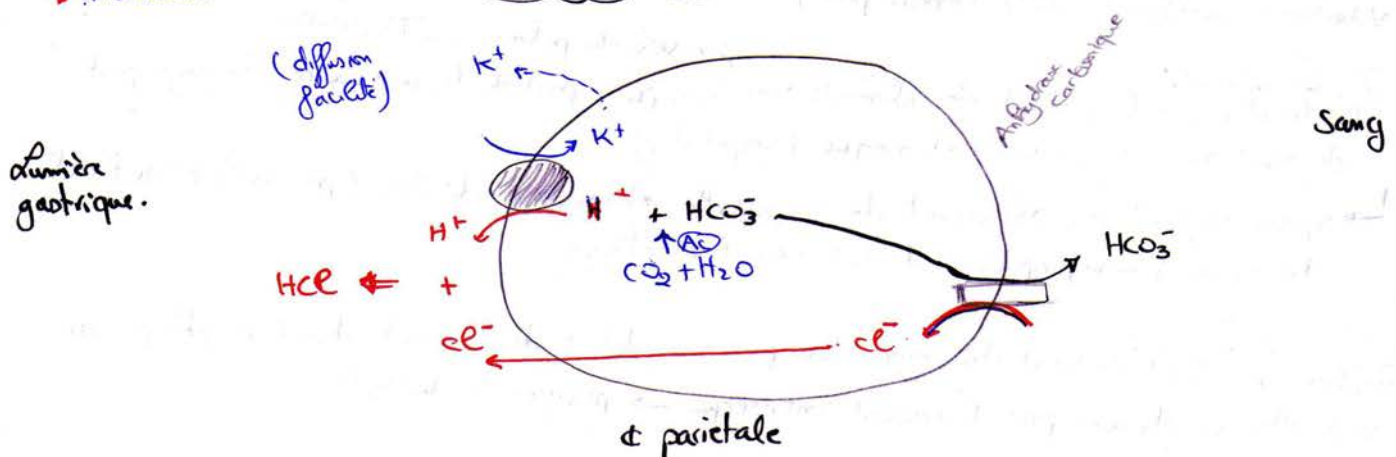 (diffusion
facilité)
K⁺
K⁺
Anhydrase
carbonique
Sang
Lumière
gastrique.
H⁺
H⁺ + HCO₃⁻
AC
CO₂ + H₂O
HCO₃⁻
HCl ⇐ +
Cl⁻
Cl⁻
¢ parietale